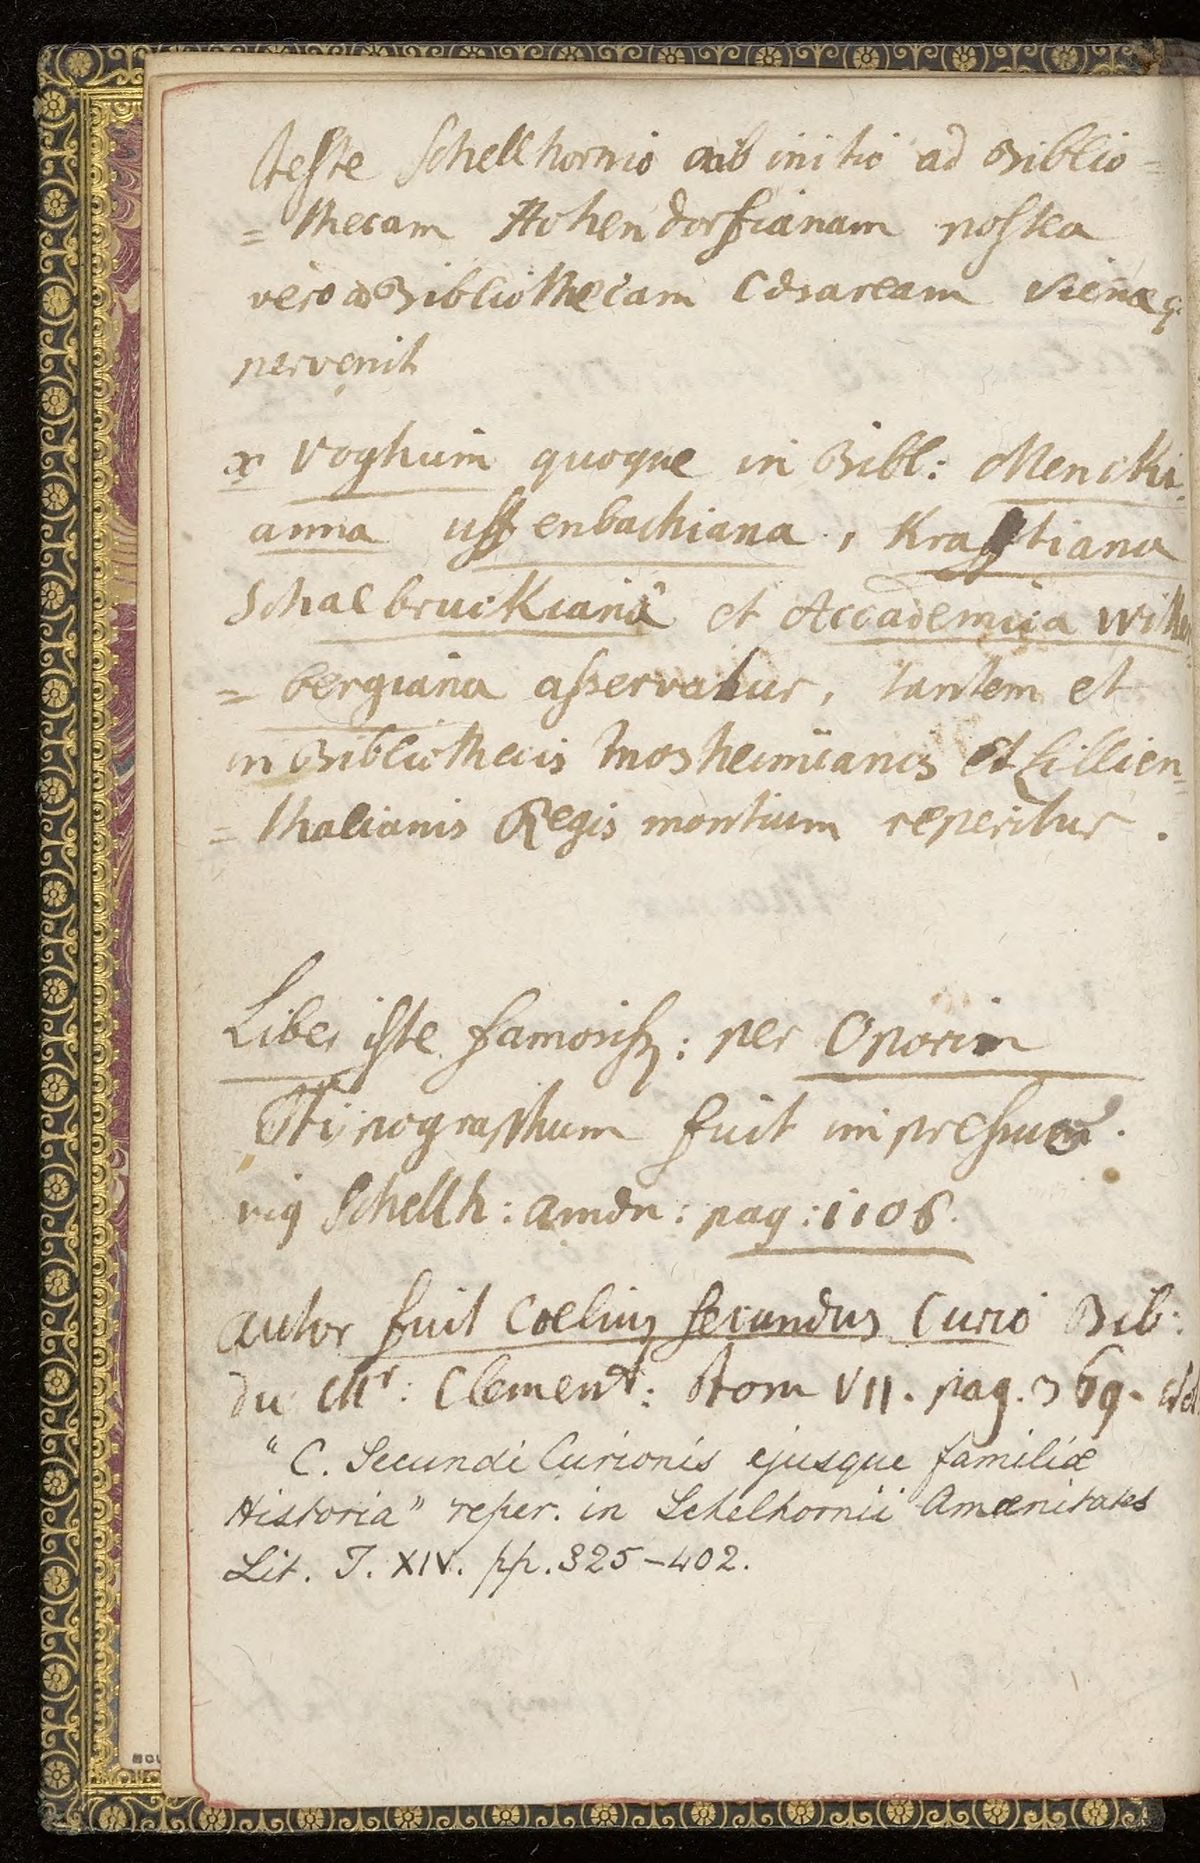 teste Schellhornio ab initio ad Biblio=
=thecam Hohendorfianam postea
vero ad Bibliothecam Cæsaream
pervenit
x Voghum quoque in Bibl: Mencki
anna uffenbachiana, Kraftiana
Schalbruckiana et Accademica Witten
=bergiana asservatur, tantem et
in Bibliothecis Mosheimianis et Lillien=
=thalianis Regis montium reperitur.
Liber iste famosiss: per Oporin
Typographum fuit impressus.
Schellh: amœn: pag: 1106.
autor fuit Coelius secundus Curio Bib:
du Mr: Clement: Tom VII. pag. 369.
"C. Secundi Curionis ejusque familiæ
Historia" reper. in Schelhornii Amœnitates
Lit. T. XIV. pp. 325–402.